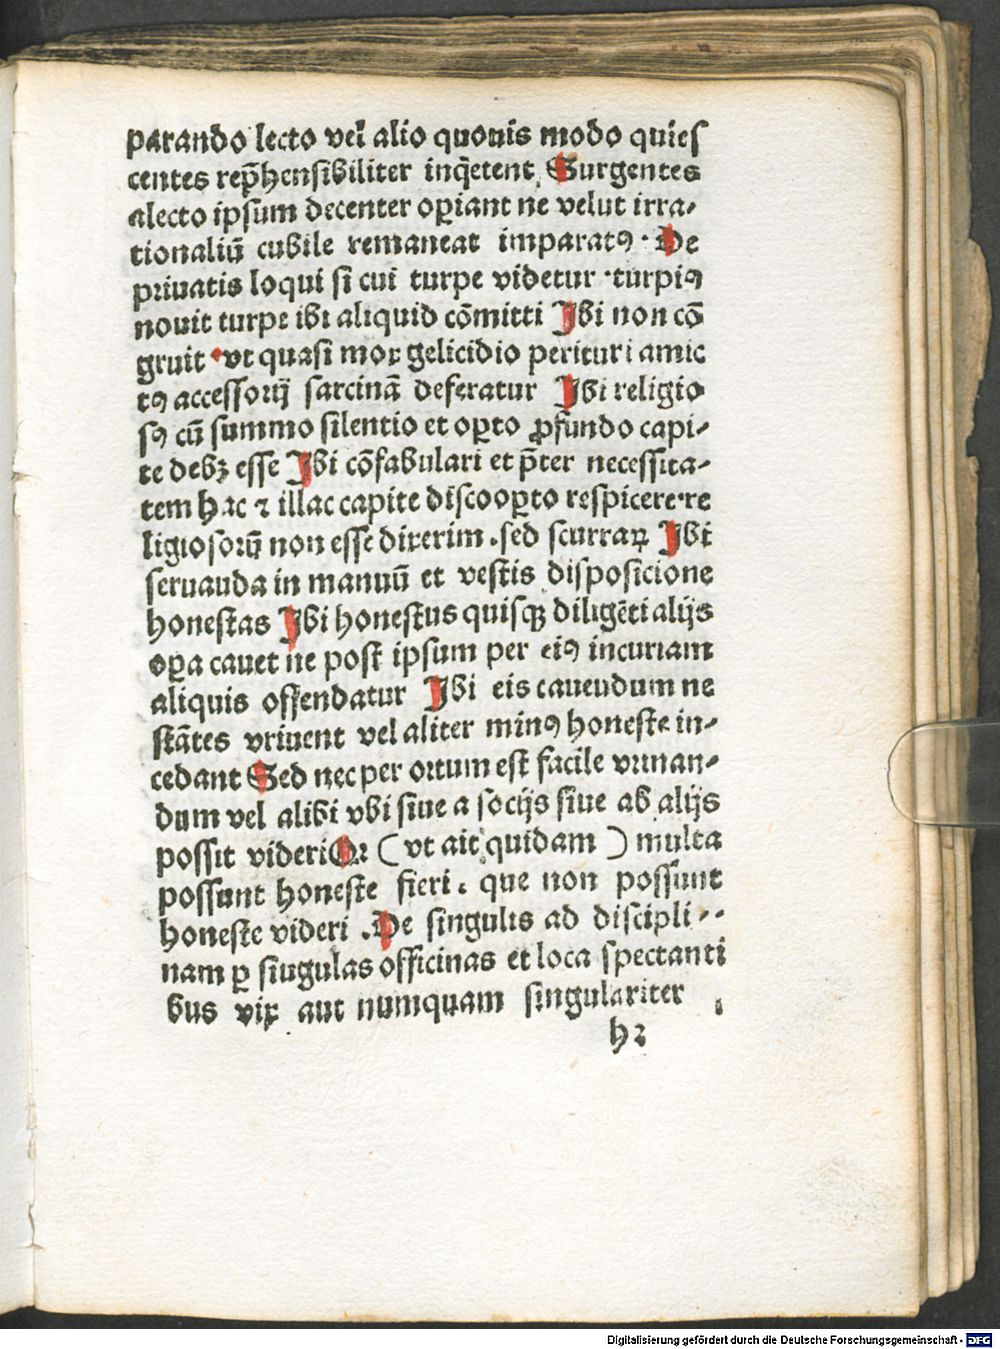 parando lecto vel alio quouis modo quieſ
centes rep̄henſibiliter inq̄etent. Surgentes
alecto ipſum decenter oꝑiant ne velut irra-
tionaliū cubile remaneat imparatꝯ · De
priuatis loqui ſi cui turpe videtur · turpiꝯ
nouit turpe ibi aliquid cōmitti Ibi non cō
gruit · vt quaſi mox gelicidio perituri amic
tꝯ acceſſorij ſarcinā deferatur Ibi religio
ſꝯ cū ſummo ſilentio et oꝑto ꝓfundo capi-
te debꝫ eſſe Ibi cōfabulari et p̄ter neceſſita-
tem hac ⁊ illac capite diſcooꝑto reſpicere·re
ligioſorū non eſſe dixerim . ſed ſcurraꝝ Ibi
ſeruauda in manuū et veſtis diſpoſicione
honeſtas Ibi honeſtus quiſqꝫ diligēti alijs
oꝑa cauet ne poſt ipſum per eiꝯ incuriam
aliquis offendatur Ibi eis cauendum ne
ſtātes vriuent vel aliter minꝯ honeſte in-
cedant Sed nec per ortum eſt facile vrinan-
dum vel alibi vbi ſiue a ſocijs ſiue ab alijs
poſſit videri Qꝛ ( vt ait quidam ) multa
poſſunt honeſte fieri . que non poſſunt
honeſte videri . De ſingulis ad diſcipli-
nam ꝑ ſiugulas officinas et loca ſpectanti
bus vix aut numquam ſingulariter
h2
Digitalisierung gefördert durch die Deutsche Forschungsgemeinschaft - DFG